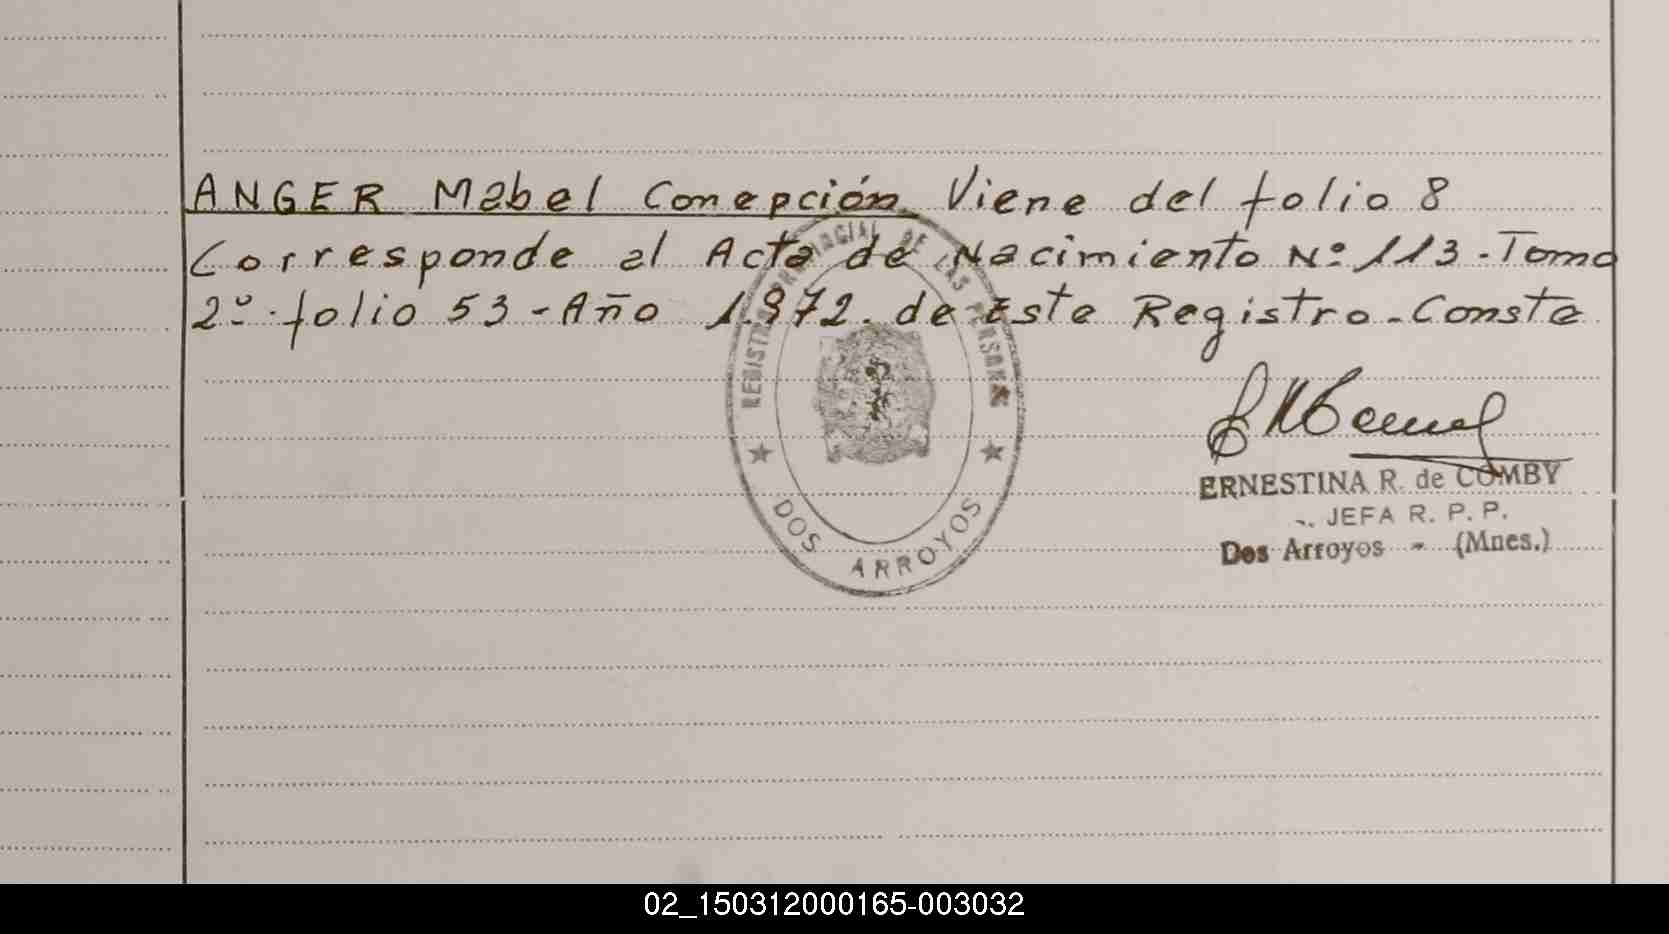 ANGER Mabel Conepción Viene del folio 8
Corresponde al Acta de Nacimiento Nº 113 - Tomo
2º - folio 53 - Año 1.972. de Este Registro - Conste
REGISTRO PROVINCIAL DE LAS PERSONAS
DOS ARROYOS
ERNESTINA R. de COMBY
JEFA R. P. P.
Dos Arroyos - (Mnes.)
02_150312000165-003032